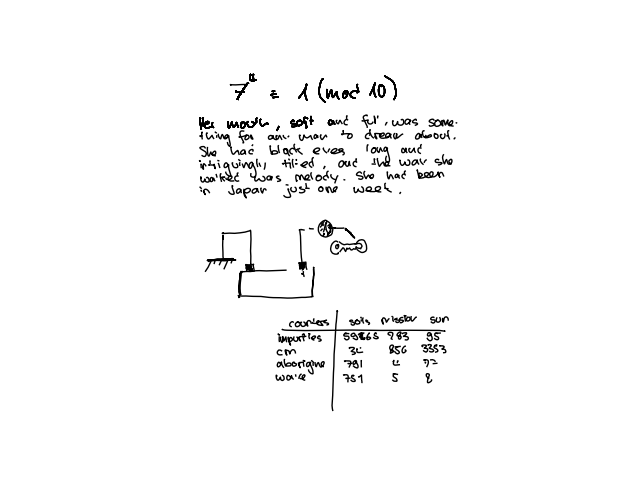 7⁴ ≡ 1 (mod 10)
Her mouth, soft and full, was some-
thing for any man to dream about.
She had black eyes, long and
intriguingly tilted, and the way she
walked was melody. She had been
in Japan just one week.
counters soils mission sun
impurties 983 95
cm 34 856 3353
aborigine 791 4
751 5 8